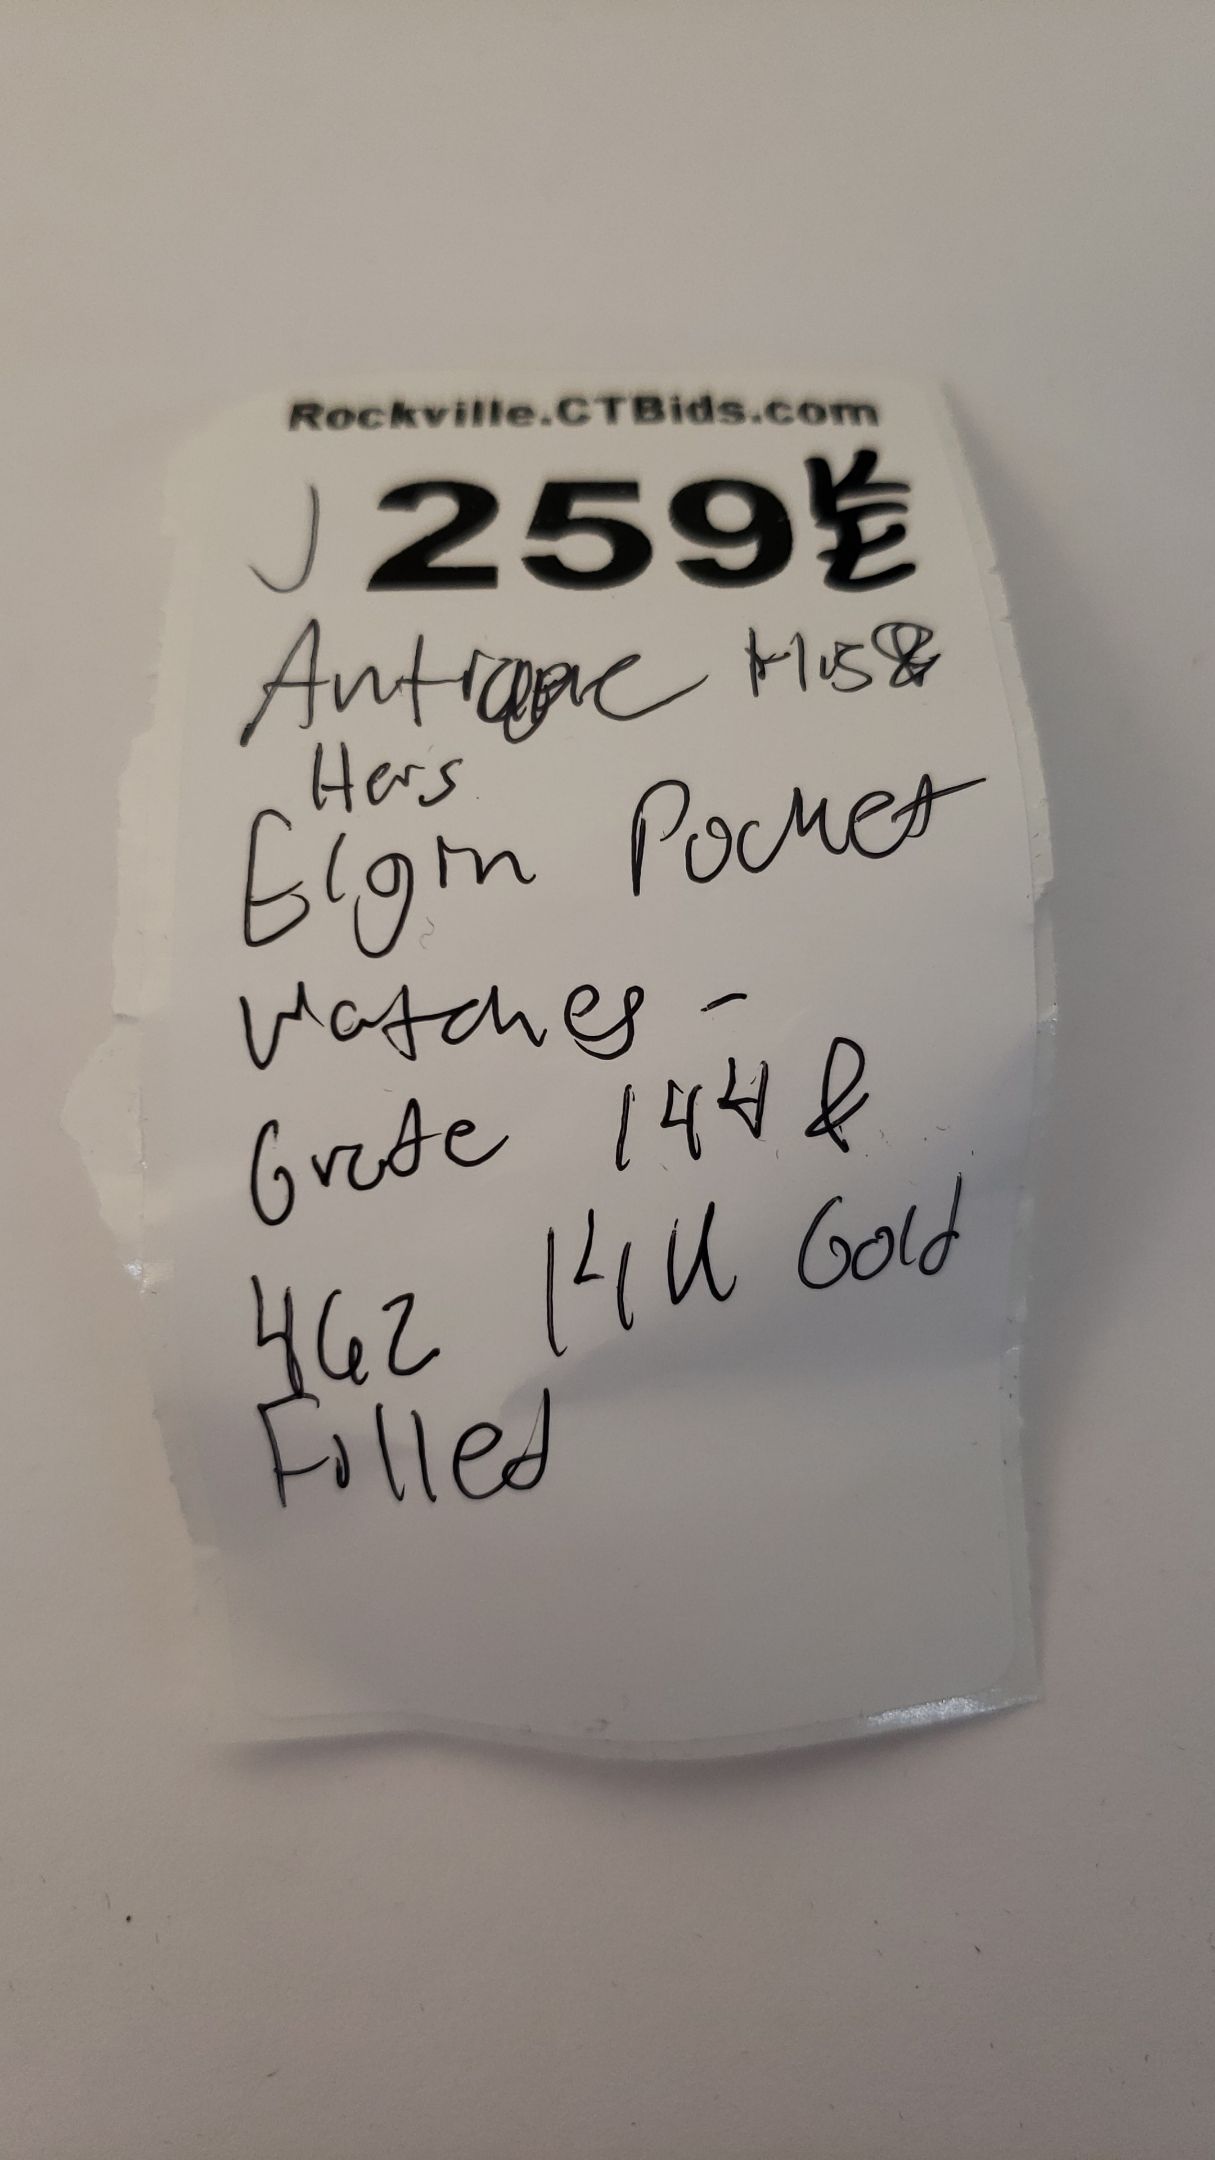 Rockville.CTBids.com
J 259 KE
Antique His &
Hers
Elgin Pocket
Watches -
Grade 144 &
462 14K Gold
Filled